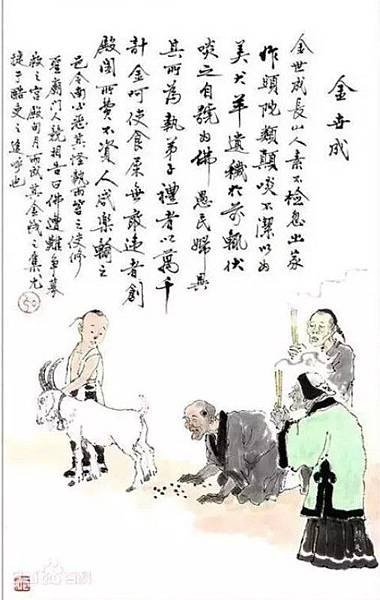 金世成
金世成長山人素不檢忽出家
作頭陀類顛啖不潔以为
美犬羊遺穢於前輒伏
啖之自號为佛愚民婦異
其所為執弟子禮者以萬千
計金呵使食屎無敢違者創
殿閣所費不資人咸樂輸之
邑令南公惡其怪執而笞之使修
聖廟門人競相告曰佛遭難爭募
救之宮殿旬月而成其金錢之集尤
捷于酷吏之追呼也